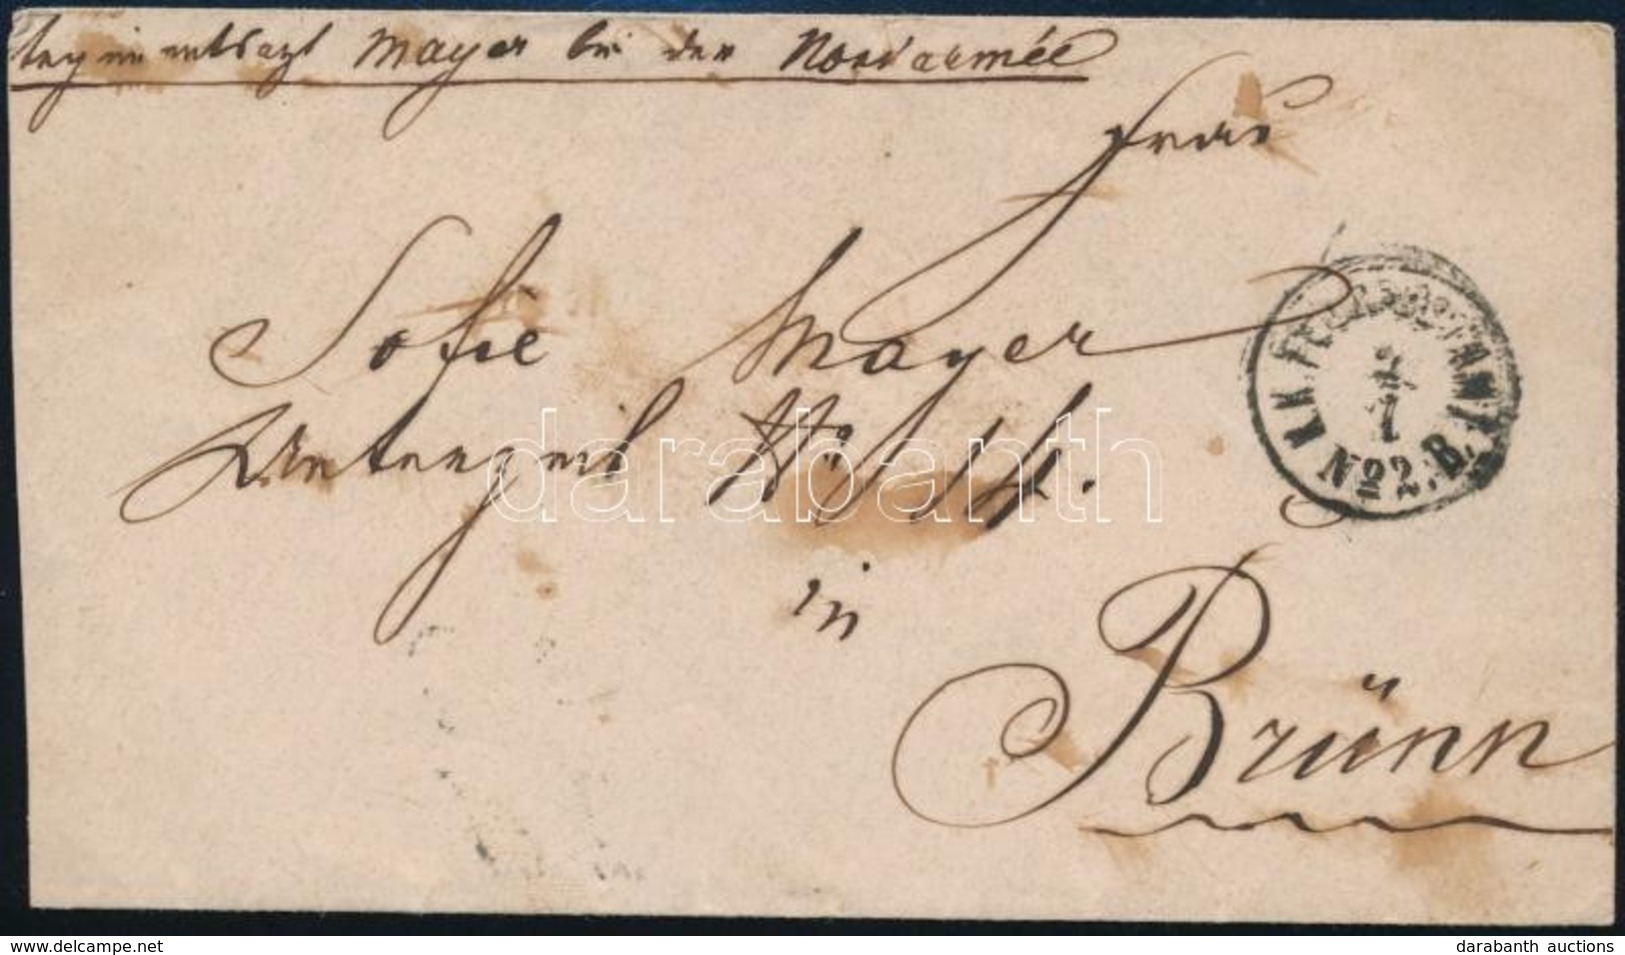 Regimentsarzt Mayer bei der Nordarmée
Frau
Sofie Mayer
No 14.
in
Brünn
K.K. FELDPOSTAMT
2/7
No 2. B.
darabanth
www.delcampe.net
darabanth auctions